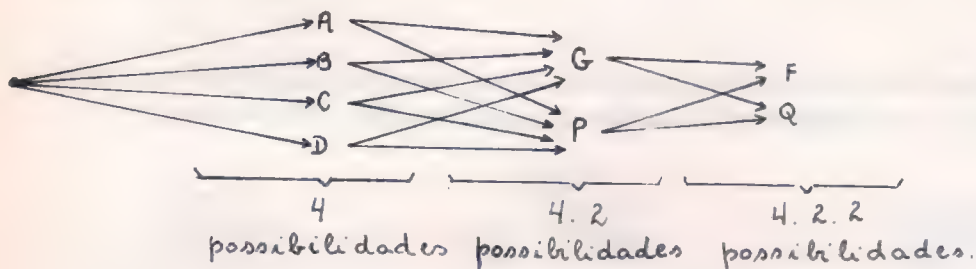 A
B
C
D
G
P
F
Q
4 4. 2 4. 2. 2
possibilidades possibilidades possibilidades.